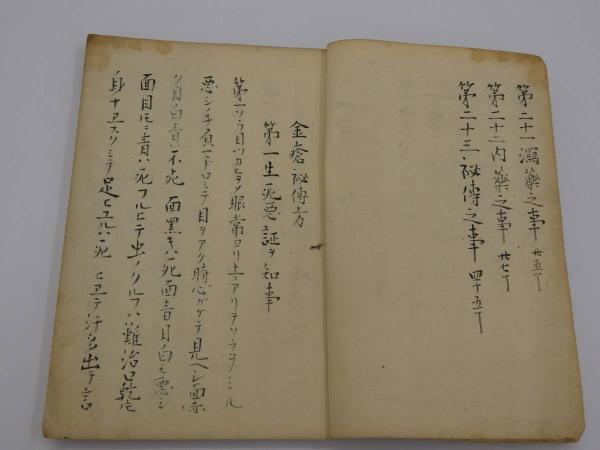 第二十一瀉薬之事 廿五丁
第二十二内薬之事 廿七丁
第二十三秘傳之事 四十五丁
金瘡秘傳方
第一生死悪証ヲ知事
第一ソラ目ツカヒ眼常ヨリ上ニアリテソラヲミル
悪シ手負一トロミテ目ヲアク時心ガケテ見ヘシ面赤
ク目ノ白青ハ不死面黒キハ死面青目白モ悪シ
面目トモニ青ハ死フルヒテ虫ノクルフハ難治口乾
身十スクミテ足ヒユルハ死ヒヱテ汗多出テ言